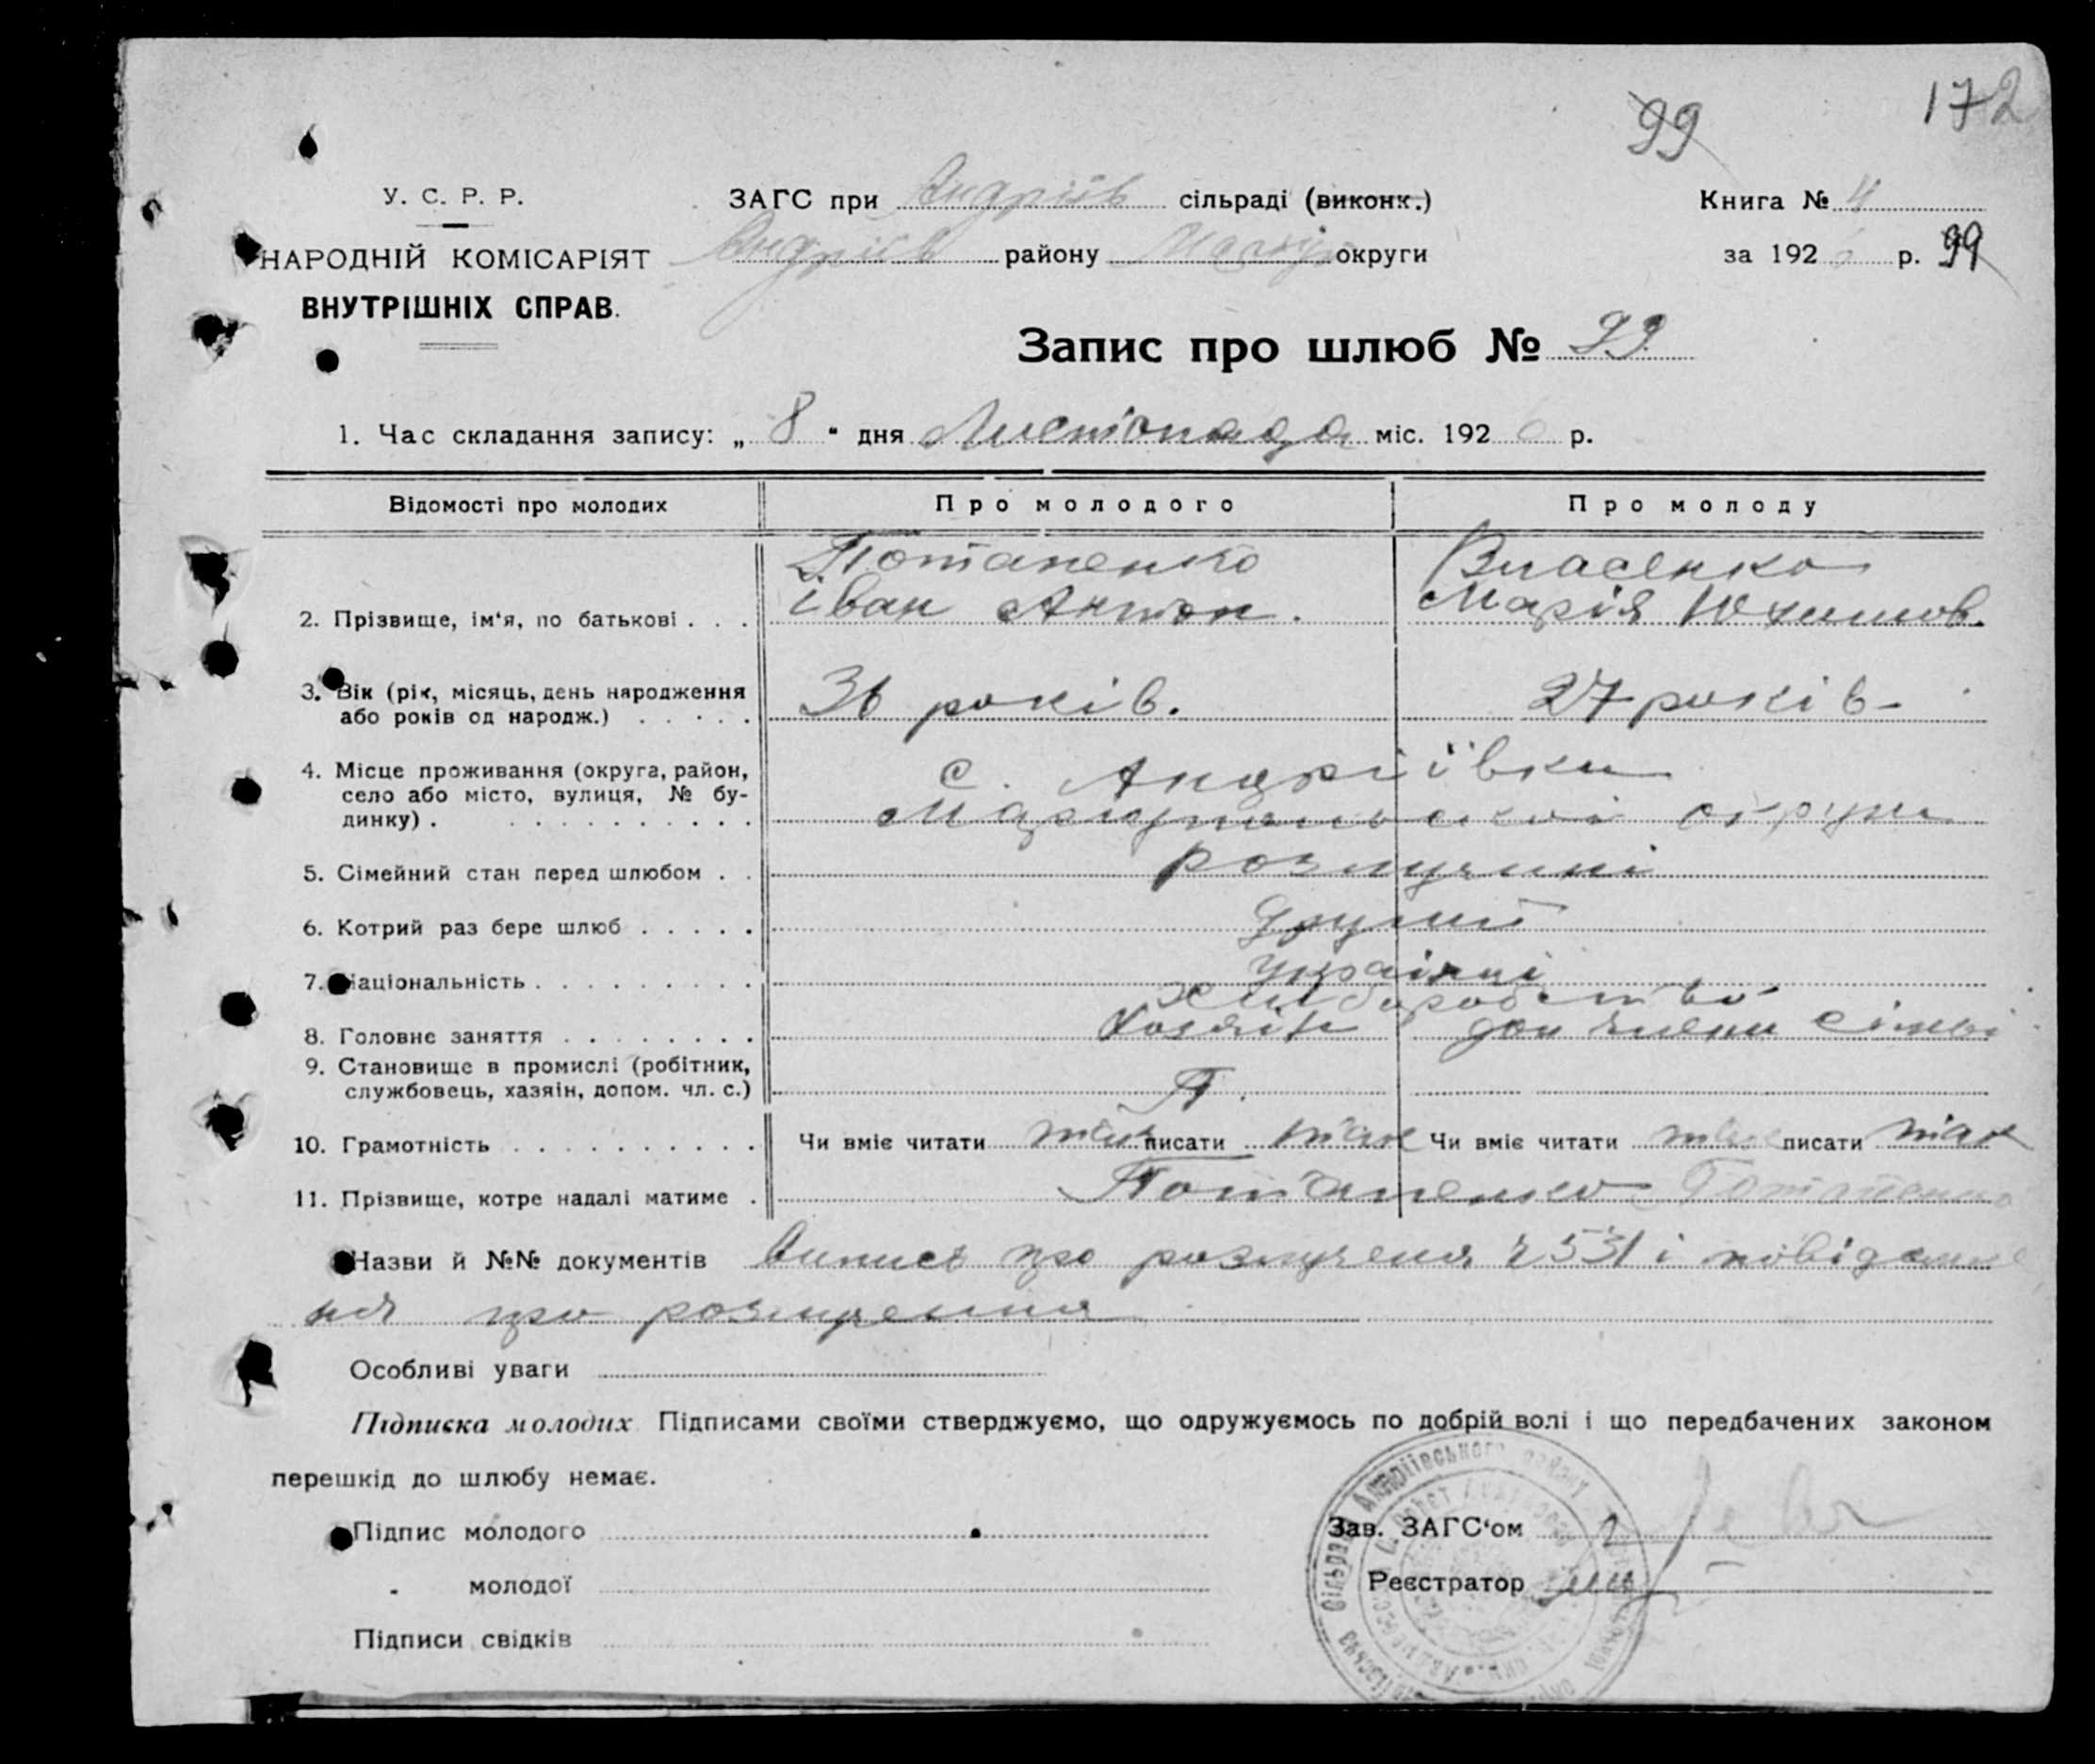 99
172
У. С. Р. Р.
НАРОДНІЙ КОМІСАРІЯТ
ВНУТРІШНІХ СПРАВ.
ЗАГС при Андріїв сільраді (виконк.)
Андріїв району округи
Книга № 4
за 192 р. 99
Запис про шлюб № 99
1. Час складання запису: „ 8 “ дня Листопада міс. 192 6 р.
Відомості про молодих
Про молодого
Про молоду
2. Прізвище, ім‘я, по батькові . . .
Потапенко
Іван Антон.
Власенко
Марія Юхимов.
3. Вік (рік, місяць, день народження
або років од народж.) . . . . .
36 років.
27 років
4. Місце проживання (округа, район,
село або місто, вулиця, № бу-
динку) . . . . . . . . . . .
с. Андріївки
Маріупольської округи
5. Сімейний стан перед шлюбом . .
розлучині
6. Котрий раз бере шлюб . . . . .
другий
7. Національність . . . . . . . . .
українці
8. Головне заняття . . . . . . . .
хліборобство
Хозяїн
доп члени сімьі
9. Становище в промислі (робітник,
службовець, хазяїн, допом. чл. с.)
П.
10. Грамотність . . . . . . . . . .
Чи вміє читати так писати так
Чи вміє читати так писати так
11. Прізвище, котре надалі матиме .
Потапенко
Потапенко
Назви й №№ документів Випись про розлученя 531 і повідомле
ня про розлучення
Особливі уваги
Підписка молодих Підписами своїми стверджуємо, що одружуємось по добрій волі і що передбачених законом
перешкід до шлюбу немає.
Підпис молодого
„ молодої
Підписи свідків
Зав. ЗАГС‘ом
Реєстратор